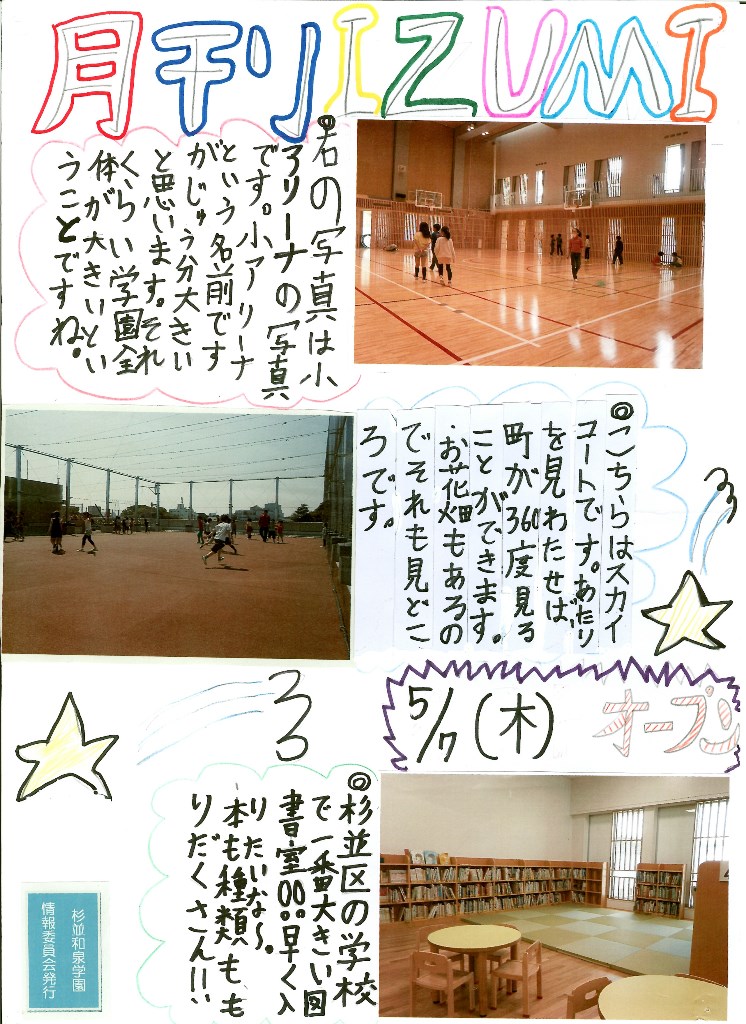 月刊IZUMI
◎右の写真は小
アリーナの写真
です。小アリーナ
という名前です
がじゅう分大きい
と思います。それ
くらい学園全
体が大きいとい
うことですね。
◎こちらはスカイ
コートです。あたり
を見わたせば、
町が360度見る
ことができます。
お花畑もあるの
でそれも見どこ
ろです。
5/7(木)オープン
◎杉並区の学校
で一番大きい図
書室。。。早く入
りたいな〜。
本も種類もも
りだくさん!!
杉並和泉学園
情報委員会発行